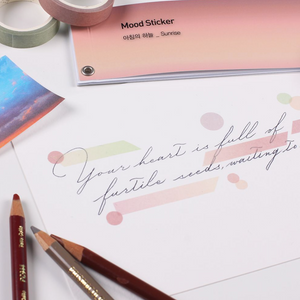 Mood Sticker
아침의 하늘 _ Sunrise
Your heart is full of
furtile seeds, waiting to